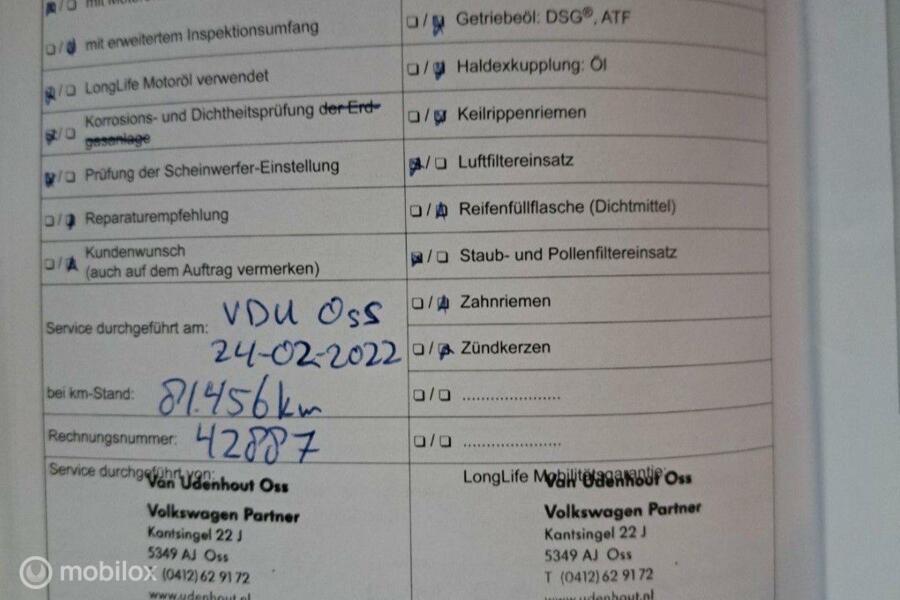 mit erweitertem Inspektionsumfang
LongLife Motoröl verwendet
Korrosions- und Dichtheitsprüfung der Erd-
gasanlage
Prüfung der Scheinwerfer-Einstellung
Reparaturempfehlung
Kundenwunsch
(auch auf dem Auftrag vermerken)
Service durchgeführt am: VDU Oss
24-02-2022
bei km-Stand: 81.456 km
Rechnungsnummer: 42887
Service durchgeführt von:
Van Udenhout Oss
Volkswagen Partner
Kantsingel 22 J
5349 AJ Oss
(0412) 62 91 72
www.udenhout.nl
Getriebeöl: DSG®, ATF
Haldexkupplung: Öl
Keilrippenriemen
Luftfiltereinsatz
Reifenfüllflasche (Dichtmittel)
Staub- und Pollenfiltereinsatz
Zahnriemen
Zündkerzen
.....................
.....................
LongLife Mobilitätsgarantie:
Van Udenhout Oss
Volkswagen Partner
Kantsingel 22 J
5349 AJ Oss
T (0412) 62 91 72
www.udenhout.nl
mobilox